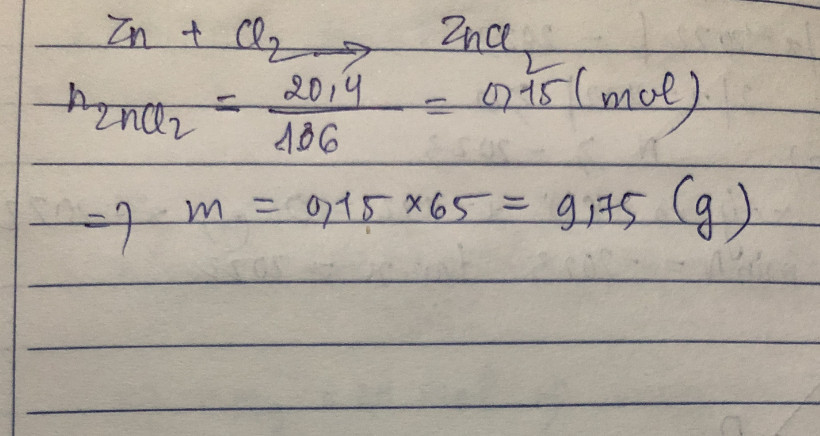 Zn + Cl₂ → ZnCl₂
n ZnCl₂ = 20,4 / 136 = 0,15 (mol)
=> m = 0,15 × 65 = 9,75 (g)